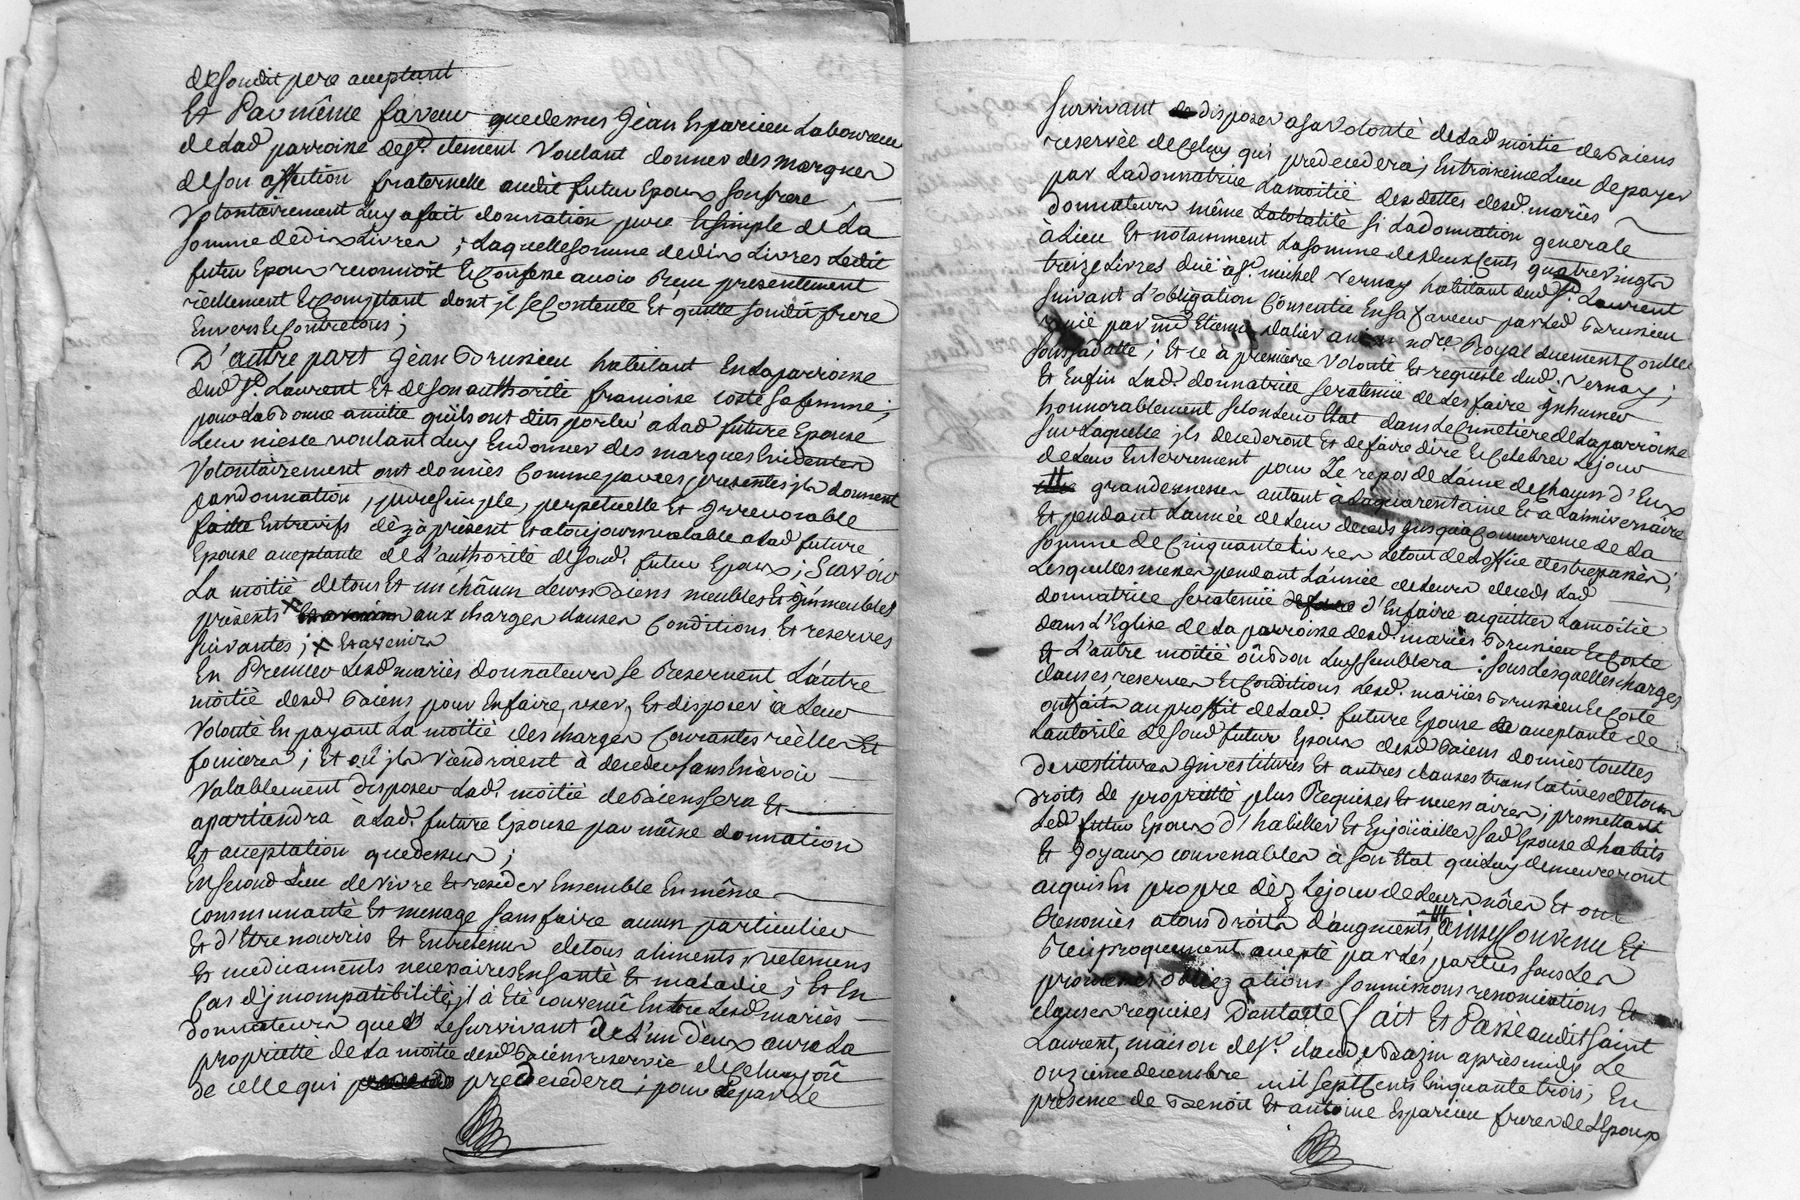 desondit pere acceptant
Et Par même faveur que dessus Jean Esparcieu Laboureur
de Lad parroisse de St. clement voulant donner des marques
de son affection fraternelle audit futur Epoux son frere
volontairement Luy a fait donnation pure Et simple de La
somme de dix Livres ; Laquelle somme de dix Livres Ledit
futur Epoux reconnoit Et Confesse avoir Receu presentement
rèellement Et Comptant dont jl se Contente Et quitte sondit frere
Envers Et Contre tous ;
D'autre part Jèan Brussieu habitant En La parroisse
dud St. Laurent Et de son authorité francoise coste sa femme ;
pour La Bonne amitie quils ont dits porter a Lad future Epouse
Leur niesse voulant Luy En donner des marques Evidentes
volontairement ont donnès Comme par ces presentes jls donnent
par donnation, pure simple, perpetuelle Et jrrevocable
faitte Entrevifs dèz à present Et a toujours valable a Lad future
Epouse acceptante de L'authorité desond. futur Epoux ; Scavoir
La moitié de tous Et un châcun Leurs Biens meubles Et jmmeubles
présents × aux charges clauses Conditions Et reserves
suivantes ; × Et avenir
En Premier Lesd mariès donnateurs se Reservent L'autre
moitié desd Biens pour En faire, user, Et disposer à Leur
volonté En payant La moitié des charges Courantes rèelles Et
foncieres ; Et où jls viendroient à deceder sans En avoir
valablement disposer Lad. moitié de Biens sera Et
apartiendra à Lad. future Epouse par même donnation
Et acceptation que dessus ;
En second Lieu de vivre Et resider Ensemble En même
communauté Et menage sans faire aucun particulier
Et d'Etre nourris Et Entretenus de tous aliments, vetemens
Et medicaments necessaires En santé Et maladie ; Et En
Cas d'jncompatibilité, jl à Eté convenû Entre Lesd mariès
donnateurs que Le survivant de L'un d'eux aura La
proprietté de La moitié desd Biens reservée de Celuy où
de celle qui predecedera ; pour de par Le
survivant disposer a sa volonté de Lad moitié de Biens
reservée de Celuy qui predecedera ; En troisieme Lieu de payer
par La donnatrice La moitié des dettes desd. mariès
donnateurs même La totalité si La donnation generale
à Lieu Et notamment La somme de deux Cents quatre vingts
treize Livres duë à St. michel Vernay habitant dud St. Laurent
suivant d'obligation Consentie En sa faveur par Led Brussieu
par me Etienne nôre. Royal duement Conllée
sous sa datte ; Et ce à premiere volonté Et requeste dud. Vernay ;
Et Enfin Lad. donnatrice sera tenüe de Les faire jnhumer
honnorablement selon Leur Etat dans Le Cimetière de La parroisse
sur Laquelle jls decederont Et de faire dire Et Celebrer Le jour
de Leur Enterrement pour Le repos de L'ame de Chacun d'Eux
grandes messes autant à La quarentaine Et a L'anniversaire
Et pendant L'année de Leur decèds jusqu'a Concurrence de La
somme de Cinquante Livres Le tout de L'office des trepassès ;
Lesquelles messes pendant L'année de Leurs decèds Lad
donnatrice sera tenüe d'En faire aquitter La moitié
dans L'Eglise de La parroisse desd. mariès Brussieu Et Coste
Et L'autre moitié où Bon Luy semblera : sous Lesquelles charges
clauses reserves Et Conditions Lesd. mariès Brussieu Et Coste
ont faits au proffit de Lad. future Epouse acceptante de
L'autorité desond futur Epoux desd Biens donnès touttes
devestitures jnvestitures Et autres clauses translatives de tous
droits de proprietté plus Requises Et necessaires ; promettant
Led futur Epoux d'habiller Et Enjoüailler sad Epouse d'habits
Et Joyaux convenables à son Etat qui Luy demeureront
acquis En propre dèz Le jour de Leurs nôces Et ont
Renoncès a tous droits d'augments, ainsy Convenu Et
Reciproquement accepté par Les parties sous Les
promesses obligations soumissions renonciations Et
clauses requises Dont acte fait Et Passé audit Saint
Laurent, maison de St. claude Bazin après midy Le
onzieme decembre mil sept Cents Cinquante trois, En
présence de Benoit Et antoine Esparcieu freres de L'Epoux